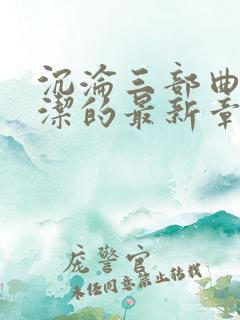 沉淪三部曲
潔的最新章
庞警官
未经同意禁止转载